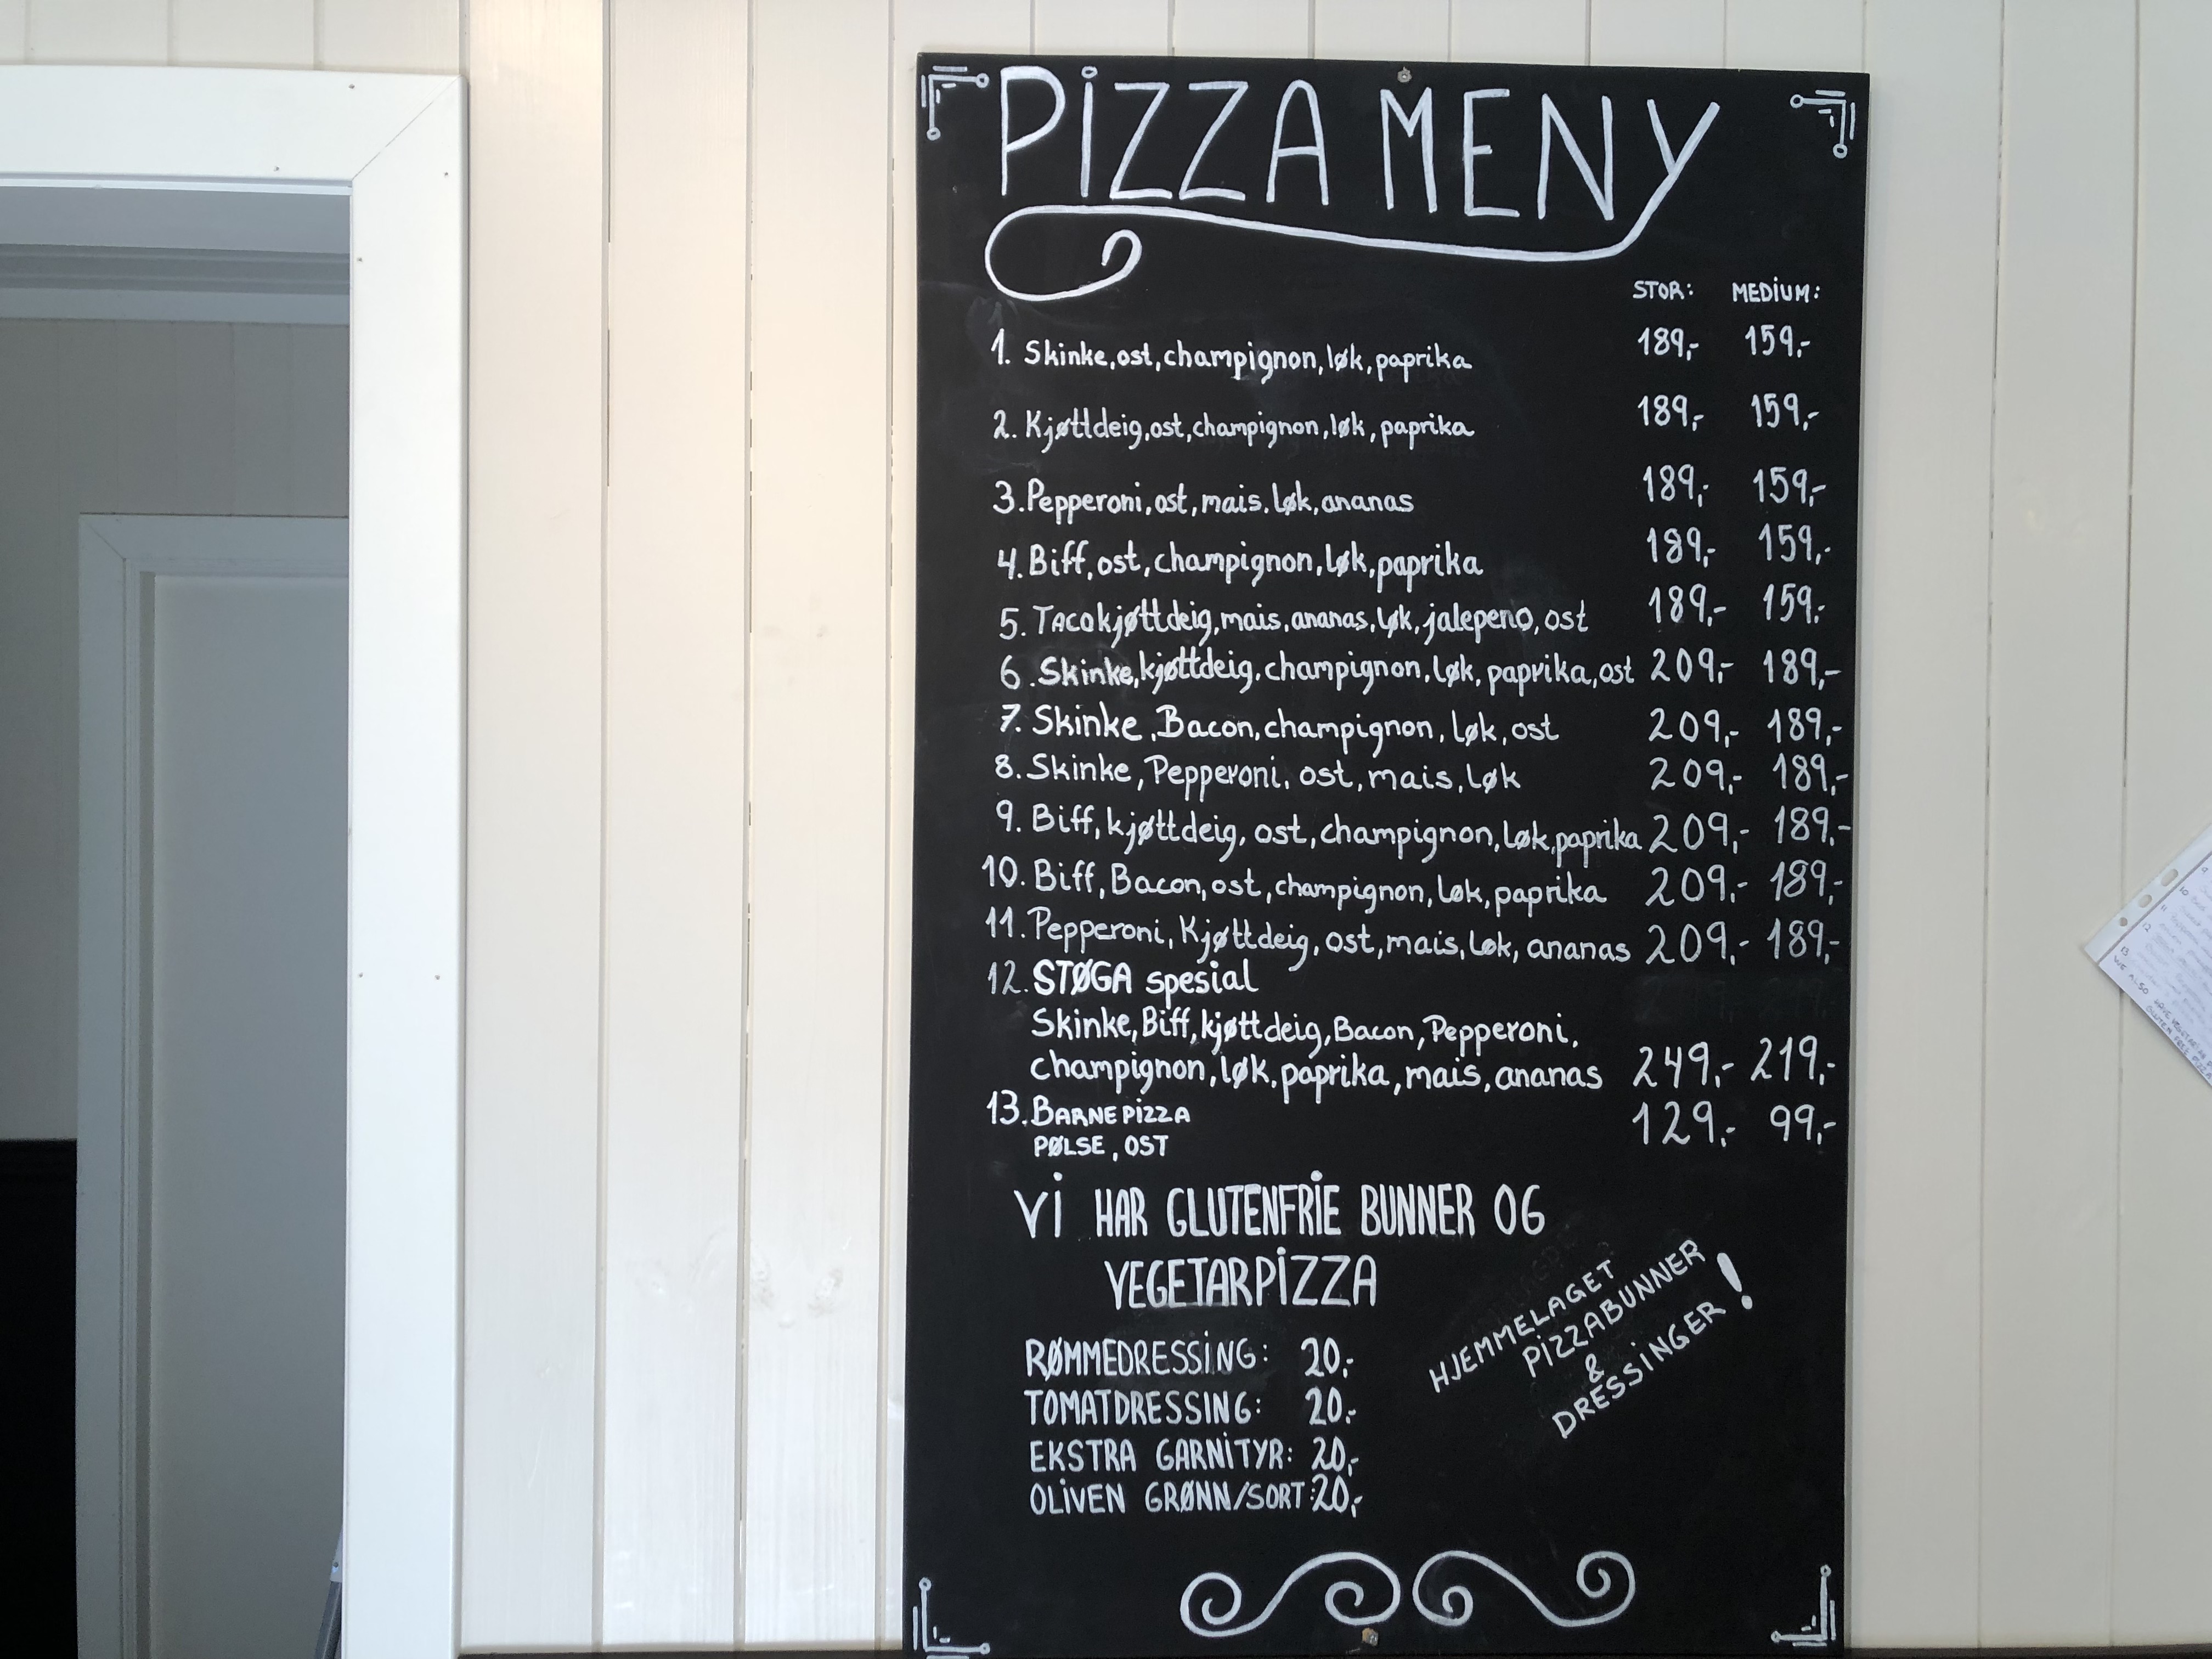 PIZZA MENY
STOR: MEDIUM:
1. Skinke, ost, champignon, løk, paprika 189,- 159,-
2. Kjøttdeig, ost, champignon, løk, paprika 189,- 159,-
3. Pepperoni, ost, mais, løk, ananas 189,- 159,-
4. Biff, ost, champignon, løk, paprika 189,- 159,-
5. Tacokjøttdeig, mais, ananas, løk, jalepeno, ost 189,- 159,-
6. Skinke, kjøttdeig, champignon, løk, paprika, ost 209,- 189,-
7. Skinke, Bacon, champignon, løk, ost 209,- 189,-
8. Skinke, Pepperoni, ost, mais, løk 209,- 189,-
9. Biff, kjøttdeig, ost, champignon, løk, paprika 209,- 189,-
10. Biff, Bacon, ost, champignon, løk, paprika 209,- 189,-
11. Pepperoni, Kjøttdeig, ost, mais, løk, ananas 209,- 189,-
12. STØGA spesial
Skinke, Biff, kjøttdeig, Bacon, Pepperoni,
champignon, løk, paprika, mais, ananas 249,- 219,-
13. BARNEPIZZA 129,- 99,-
PØLSE, OST
Vi HAR GLUTENFRIE BUNNER OG
VEGETARPIZZA
RØMMEDRESSING: 20,-
TOMATDRESSING: 20,-
EKSTRA GARNITYR: 20,-
OLIVEN GRØNN/SORT: 20,-
HJEMMELAGET
PIZZABUNNER
&
DRESSINGER!